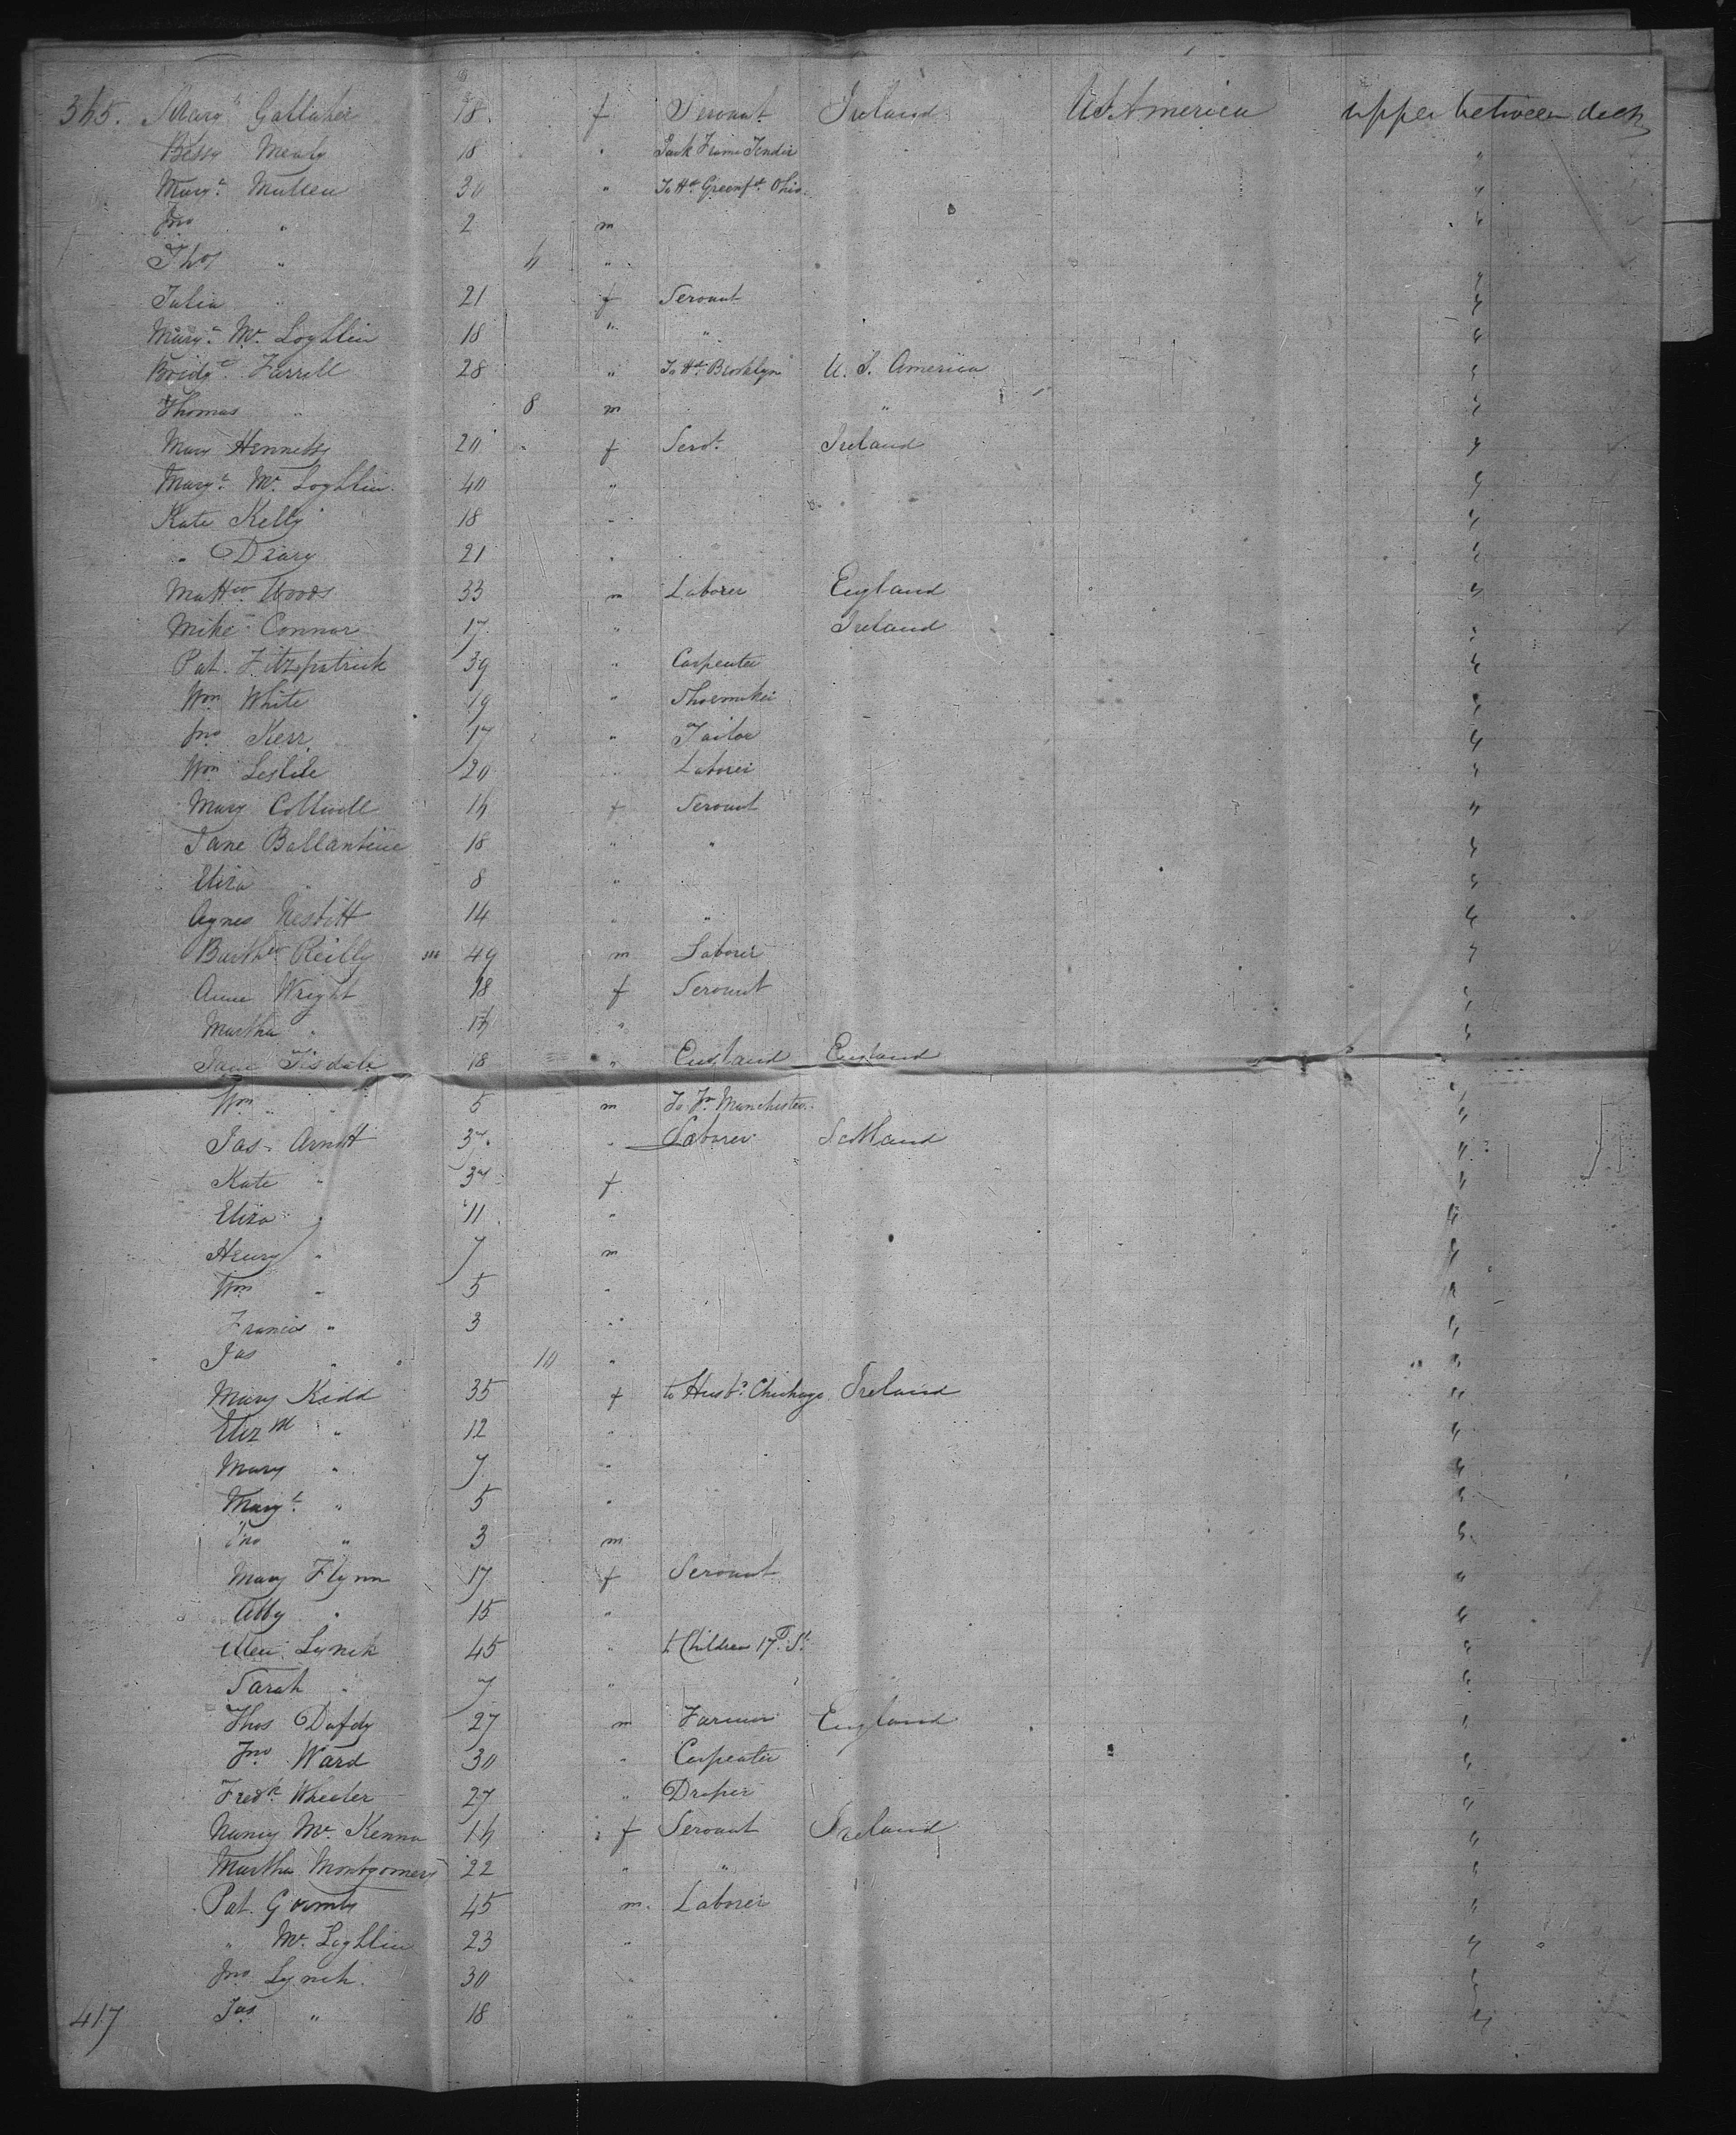 365. Margt Gallaher 18 f Servant Ireland U S America upper between deck
Bessy 18 " "
Margt Mullen 30 " To Hd Ohio "
Jno " 2 m "
Thos " "
Julia " 21 f Servant "
Margt Mc Loghlin 18 " " "
Bridgt Farrell 28 " To Hd Brooklyn U. S. America "
Thomas " 8 m " "
Mary Hennessy 20 f Servt Ireland "
Margt Mc Loghlin 40 " "
Kate Kelly 18 " "
" Deary 21 " "
Mattw Woods 33 m Laborer England "
Mike Connor 17 " Ireland "
Pat. Fitzpatrick 39 " Carpenter "
Wm White 19 " Shoemaker "
Jno Kerr 17 " Tailor "
Wm Leslie 20 " Laborer "
Mary 16 f Servant "
Jane Ballantine 18 " " "
Eliza " 8 " "
Agnes Nesbitt 14 " " "
Barthw Reilly 49 m Laborer "
Anne Wright 18 f Servant "
Martha " 16 " "
Jane Tisdale 18 " England England "
Wm " 5 m Manchester "
Jas. Arnott 37 " Laborer Scotland "
Kate " 37 f "
Eliza " 11 " "
Henry " 7 m "
Wm " 5 " "
Francis " 3 " "
Jas " 10 " "
Mary Kidd 35 f to Husbd Chickago Ireland "
Elizth " 12 " "
Mary " 7 " "
Margt " 5 " "
Jno " 3 m "
Mary Flynn 17 f Servant "
Abby " 15 " "
Lynch 45 " to Children 17th St "
Sarah " 7 " "
Thos 27 m Farmer England "
Jno Ward 30 " Carpenter "
Fredk Wheeler 27 " Draper "
Nancy Mc Kenna 16 f Servant Ireland "
Martha Montgomery 22 " " "
Pat. 45 m. Laborer "
" Mc Loghlin 23 " "
Jno Lynch 30 " "
417 Jas " 18 " "